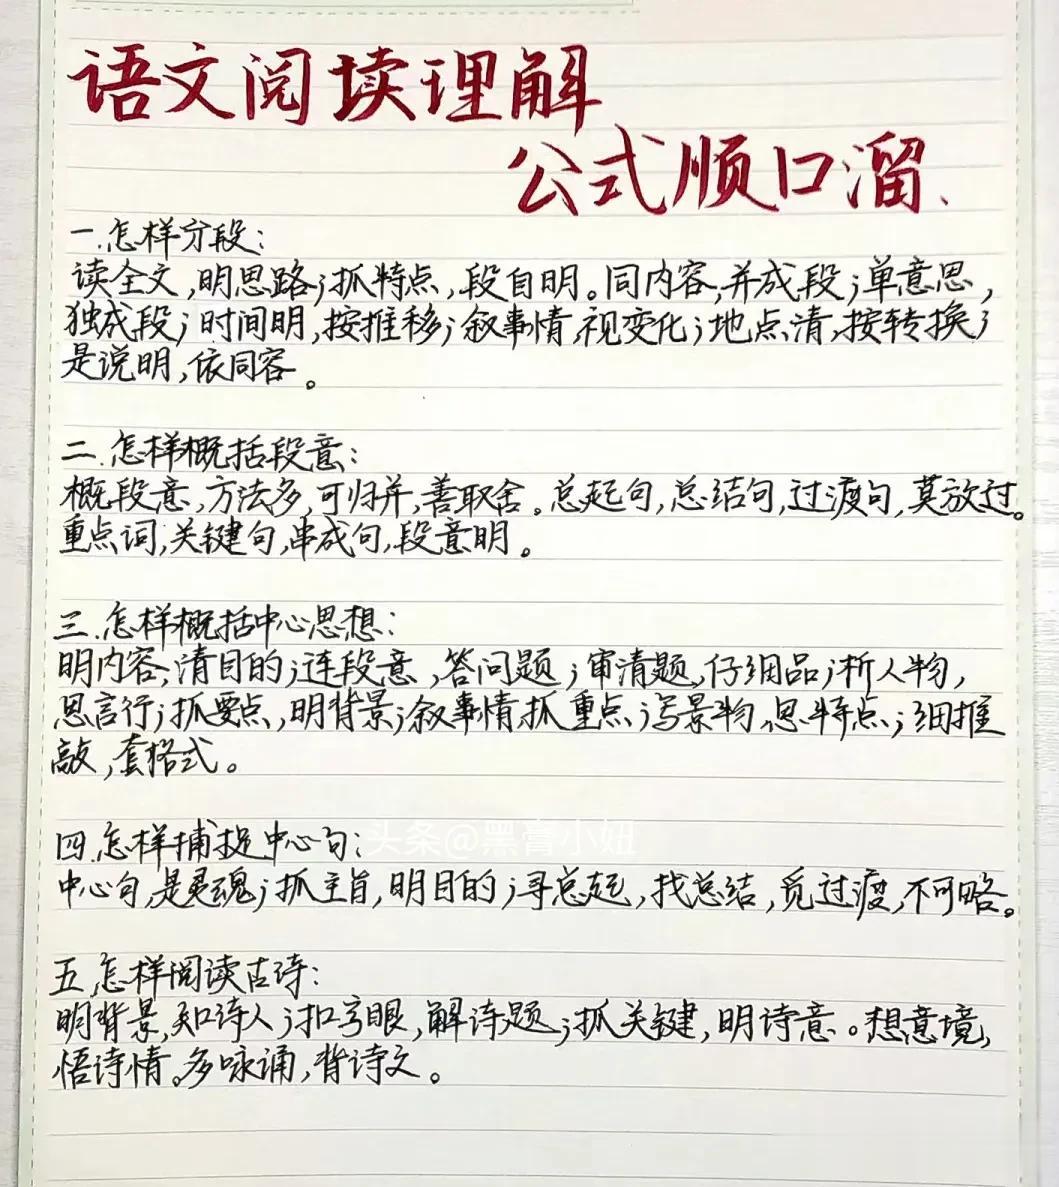 语文阅读理解
公式顺口溜、
一.怎样分段:
读全文,明思路;抓特点,段自明。同内容,并成段;单意思,
独成段;时间明,按推移;叙事情,视变化;地点清,按转换;
是说明,依同容。
二.怎样概括段意:
概段意,方法多,可归并,善取舍。总起句,总结句,过渡句,莫放过。
重点词,关键句,串成句,段意明。
三.怎样概括中心思想:
明内容,清目的;连段意,答问题;审清题,仔细品;析人物,
思言行;抓要点,明背景;叙事情抓重点;写景物,思特点;细推
敲,套格式。
头条@黑膏小妞
四.怎样捕捉中心句:
中心句,是灵魂;抓主旨,明目的;寻总起,找总结,觅过渡,不可略。
五.怎样阅读古诗:
明背景,知诗人;扣字眼,解诗题;抓关键,明诗意。想意境,
悟诗情。多咏诵,背诗文。